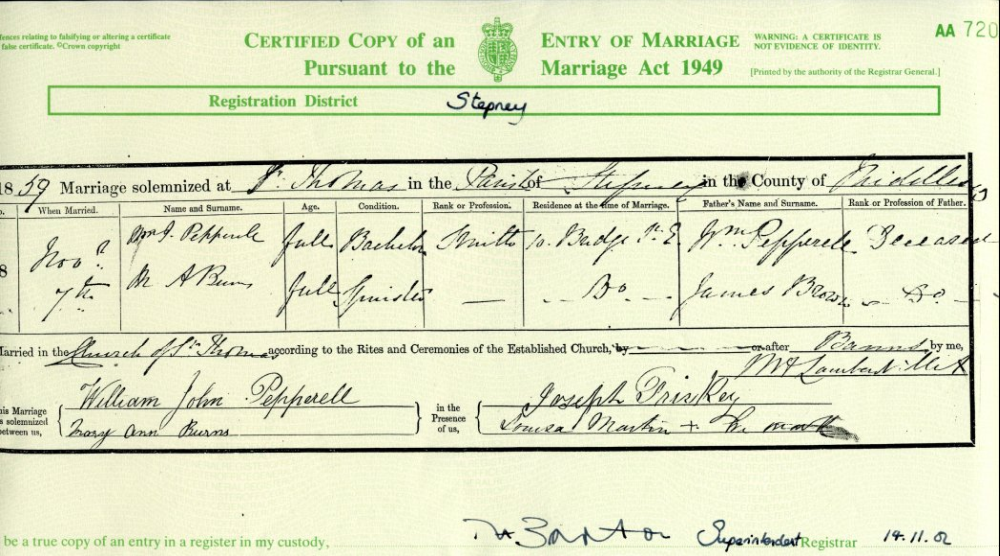 fences relating to falsifying or altering a certificate
false certificate. ©Crown copyright
CERTIFIED COPY of an ENTRY OF MARRIAGE
Pursuant to the Marriage Act 1949
WARNING: A CERTIFICATE IS
NOT EVIDENCE OF IDENTITY.
[Printed by the authority of the Registrar General.]
AA 720
Registration District Stepney
1859 Marriage solemnized at St. Thomas in the Parish of Stepney in the County of
When Married. Name and Surname. Age. Condition. Rank or Profession. Residence at the time of Marriage. Father's Name and Surname. Rank or Profession of Father.
8 Novr. 7th
Wm J. Pepperell full Bachelor Smith 10. St. E Wm Pepperell Deceased
M A Burns full Spinster — Do James Brown Do
Married in the Church of St. Thomas according to the Rites and Ceremonies of the Established Church, by or after Banns by me,
This Marriage was solemnized between us,
William John Pepperell
Mary Ann Burns
in the Presence of us,
Joseph Friskey
Louisa Martin +
be a true copy of an entry in a register in my custody, Superintendent Registrar 14.11.02